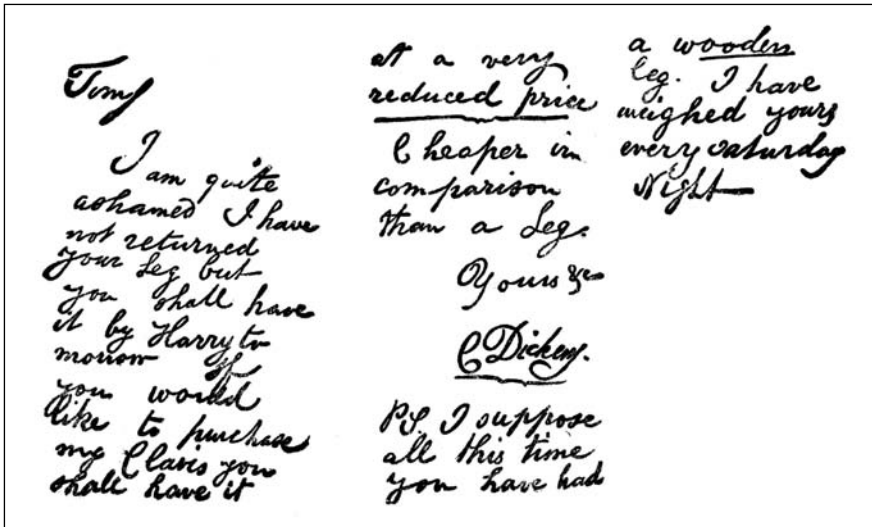 Tom
I
am quite
ashamed I have
not returned
your Leg but
you shall have
it by Harry to
morrow If
you would
like to purchase
my Clavis you
shall have it
at a very
reduced price
Cheaper in
comparison
than a Leg.
Yours &c
C Dickens.
PS. I suppose
all this time
you have had
a wooden
leg. I have
weighed yours
every saturday
Night